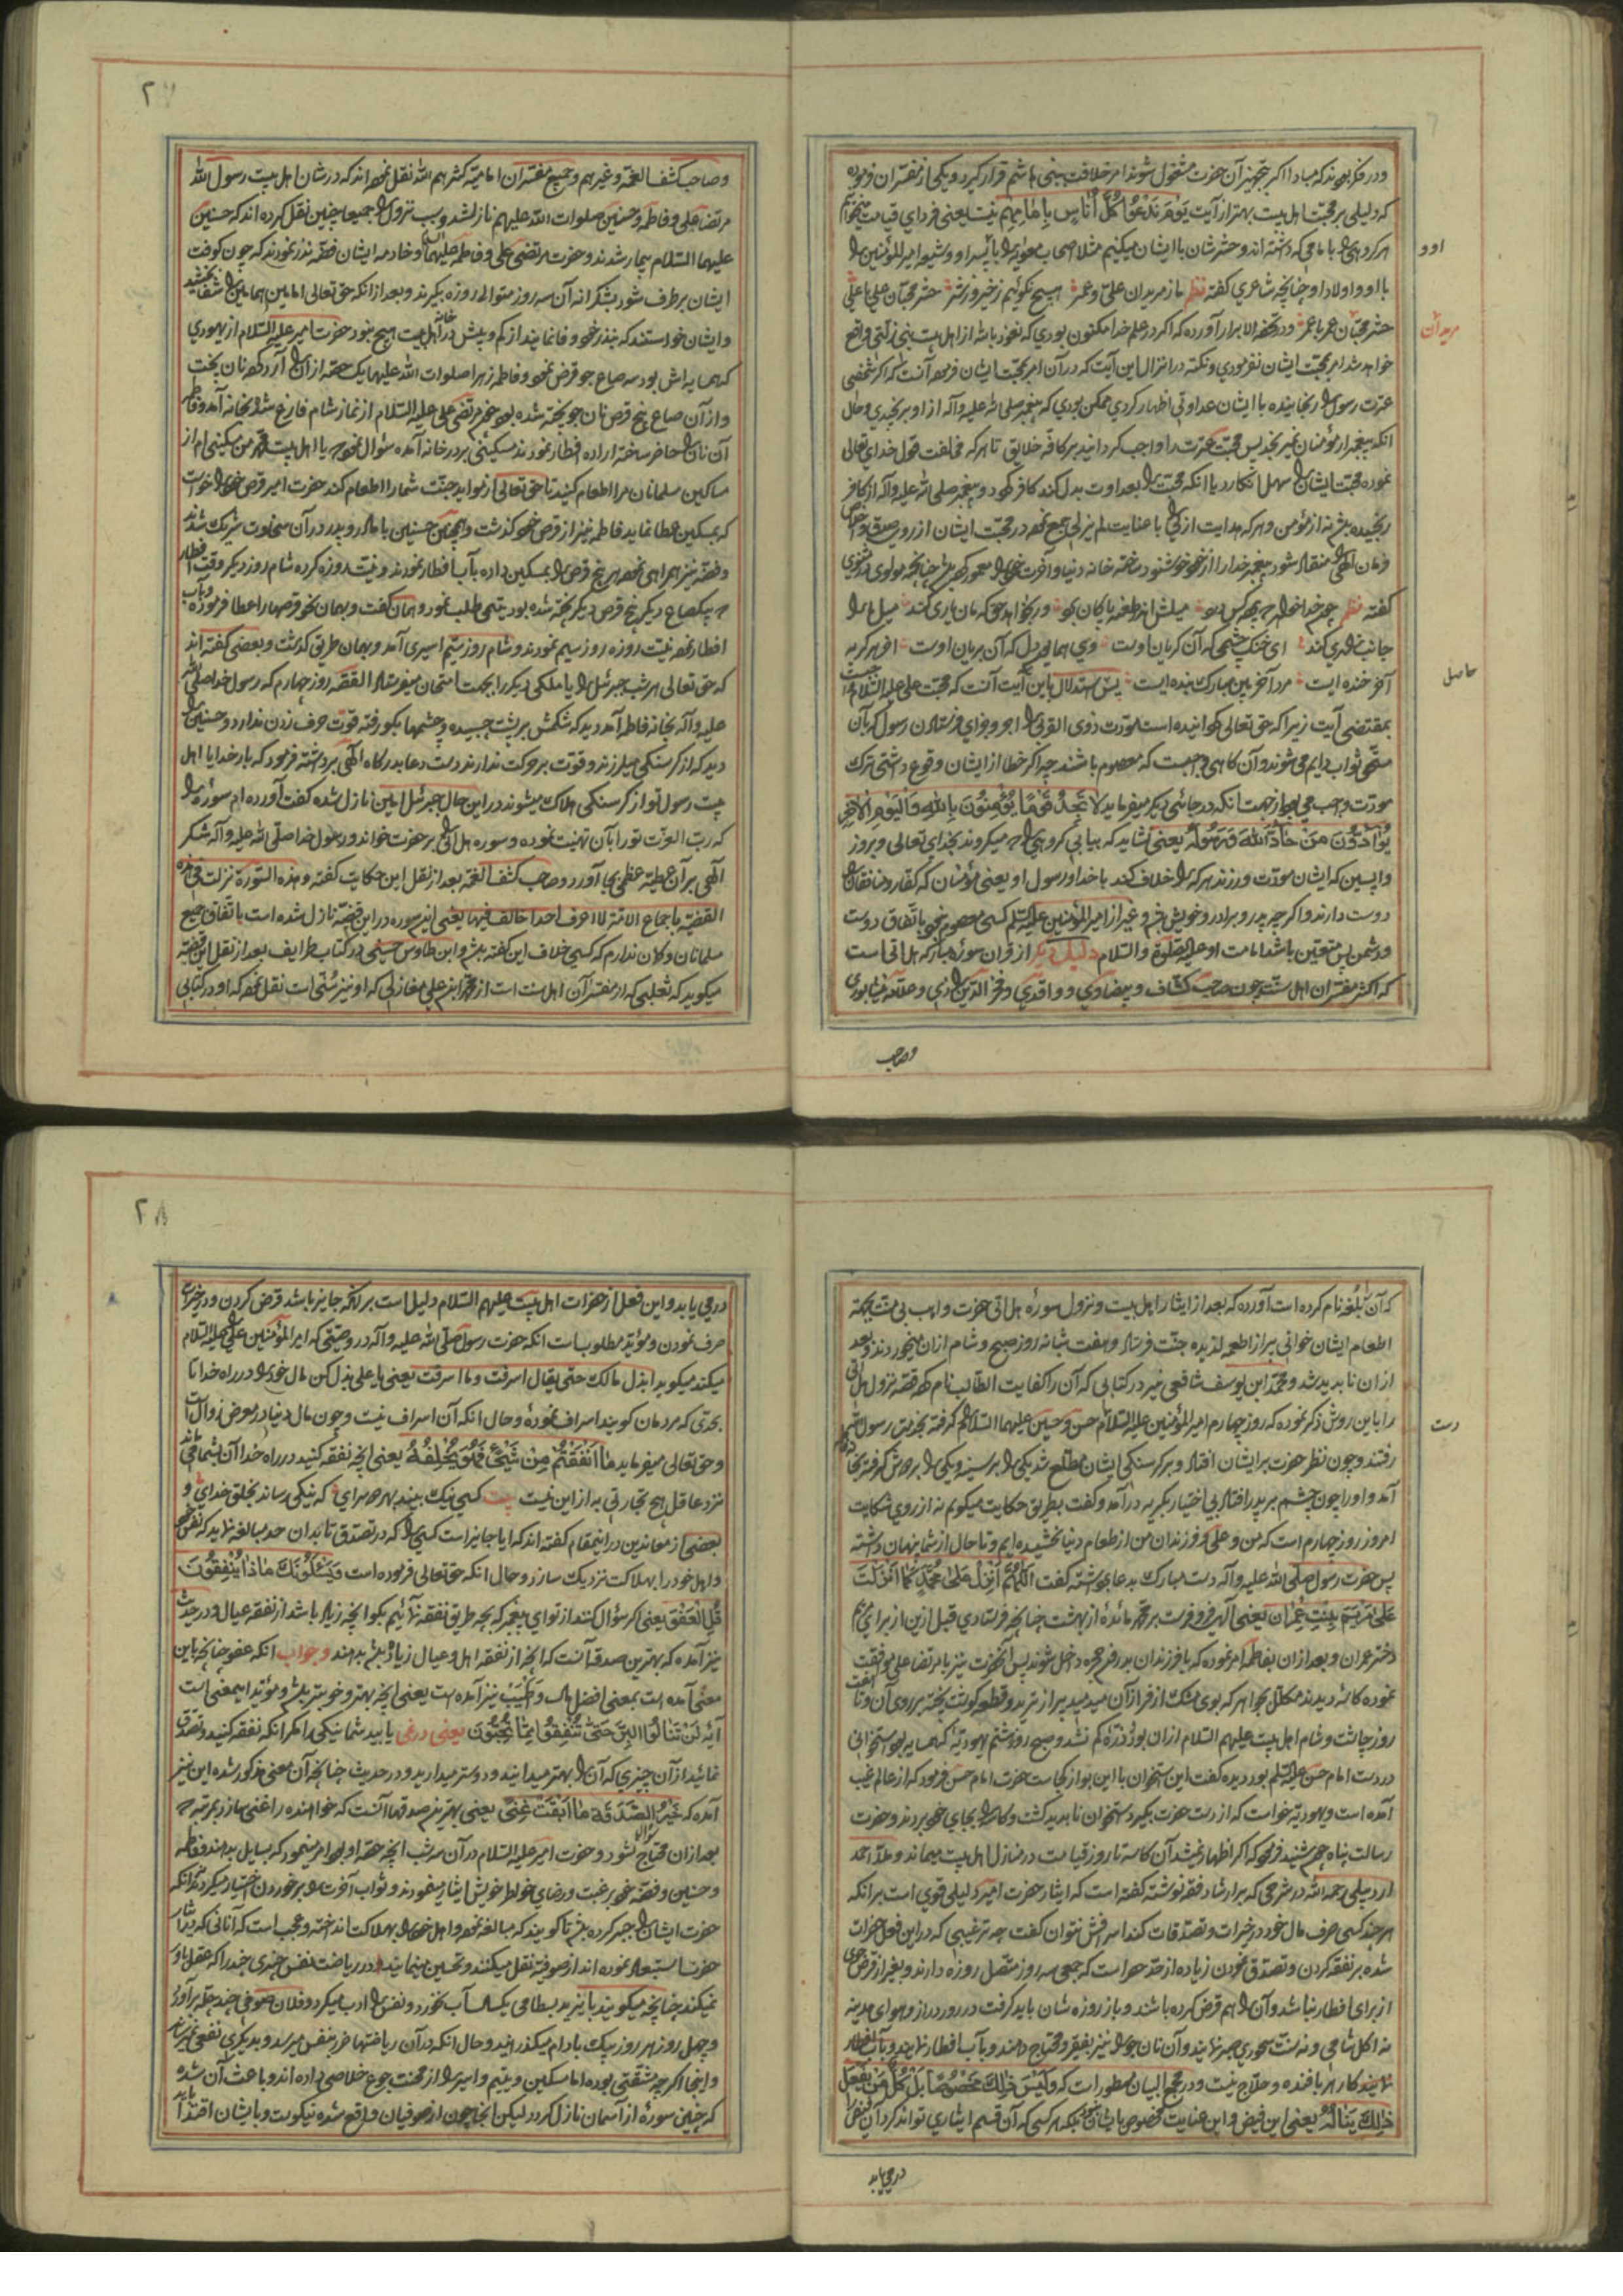 ودر فکر بودند که مبادا اکر بتجهیز آن حضرت مشغول شوند امر خلافت ببنی هاشم قرار کیرد ویکی از مفسران فرموده
که دلیلی بر محبت اهل بیت بهتر از آیت یَوْمَ نَدْعُوا كُلَّ أُنَاسٍ بِإِمَامِهِمْ نیست یعنی فردای قیامت میخوانیم
هر کروهی را با امامی که داشته اند وحشر شان با ایشان میکنیم مثلا اصحاب معویه را با پسر او وشیعه امیر المؤمنین را
با او و اولاد او چنانچه شاعری کفته نظم ما از مریدان علی وعمر هیچ نکوئیم ز خیر وز شر حشر محبان علی با علی
حشر محبان عمر با عمر ودر تحفه الابرار آورده که اکر در علم خدا مکنون بودی که نعوذ بالله از اهل بیت نبی زلتی واقع
خواهد شد امر بمحبت ایشان نفرمودی ونکته در انزال این آیت که در آن امر بمحبت ایشان فرموده آنست که اکر شخصی
عترت رسول را رنجانیده با ایشان عداوتی اظهار کردی ممکن بودی که پیغمبر صلی الله علیه وآله از او برنجیدی وحال
انکه پیغمبر از مؤمنان نمیرنجد پس محبت عترت را واجب کردانید بر کافه خلایق تا هر که مخالفت قول خدای تعالی
نموده محبت ایشان را سهل انکارد یا انکه محبت را بعداوت بدل کند کافر کردد وپیغمبر صلی الله علیه وآله از کافر
رنجیده باشد نه از مؤمن وهر که هدایت ازلی را با عنایت لم یزلی جمع نموده در محبت ایشان از روی صدق
فرمان الهی را منقاد شود پیغمبر خدا را از خود خوشنود ساخته خانه دنیا وآخرت خود را معمور کرده باشد چنانچه مولوی در مثنوی
کفته نظم چون خدا خواهد که پرده کس درد میلش اندر طعنه پاکان برد ور بخواهد حق که مان یاری کند میل ما را
جانب زاری کند ای خنک چشمی که آن کریان اوست وی همایون دل که آن بریان اوست اخر هر کریه
آخر خنده ایست مرد آخر بین مبارک بنده ایست پس استدلال باین آیت آنست که محبت علی علیه السلام واجبست
بمقتضی آیت زیرا که حق تعالی کردانیده است مودت ذوی القربی را اجر وجزای فرستادن رسول که بآن
مستحق ثواب دایم می شوند وآن کاهی واجبست که معصوم باشند چه اکر خطا از ایشان وقوع داشتی ترک
مودت واجب می بود از جهت انکه در جائی دیکر میفرماید لَا تَجِدُ قَوْمًا يُؤْمِنُونَ بِاللهِ وَالْيَوْمِ الْآخِرِ
يُوَادُّونَ مَنْ حَادَّ اللهَ وَرَسُولَهُ یعنی نشاید که بیابی کروهی را که میکروند بخدای تعالی وبروز
واپسین که ایشان مودت ورزند هر که را خلاف کند با خدا ورسول او یعنی مؤمنان که کفار ومنافقان را
دوست دارند واکر چه پدر وبرادر وخویش باشد وغیر از امیر المؤمنین علیه السلم کسی معصوم نبود باتفاق دوست
ودشمن پس متعین باشد امامت او علیه الصلوة والسلام دلیل دیکر از قران سوره مبارکه هل اتی است
که اکثر مفسران اهل سنت چون صاحب کشاف وبیضاوی وواقدی وفخر الدین رازی وعلامه نیشابوری
اوو
مریدان
حاصل
وصاحب
۲۷
وصاحب کشف الغمه وغیرهم وجمیع مفسران امامیه کثرهم الله نقل نموده اند که در شان اهل بیت رسول الله
مرتضا علی وفاطمه وحسنین صلوات الله علیهم نازل شد وسبب نزول را جمیعا چنین نقل کرده اند که حسنین
علیهما السلام بیمار شدند وحضرت مرتضی علی وفاطمه علیهما السلام وخادمه ایشان فضه نذر نمودند که چون کوفت
ایشان برطرف شود بشکرانه آن سه روز متوالی روزه بکیرند وبعد از انکه حق تعالی امامین همامین را شفا بخشید
وایشان خواستند که بنذر خود وفا نمایند از کم وبیش در خانه اهل بیت هیچ نبود حضرت امیر علیه السلام از یهودی
که همسایه اش بود سه صاع جو قرض نمود وفاطمه زهرا صلوات الله علیها یک حصه از آن را آرد کرده نان پخت
واز آن صاع پنج قرص نان جو پخته شده بود چون مرتضی علی علیه السلام از نماز شام فارغ شد بخانه آمد وفاطمه
آن نان را حاضر ساخته اراده افطار نمودند مسکینی بر در خانه آمده سؤال نمود که یا اهل بیت محمد من مسکینی ام از
مساکین مسلمانان مرا اطعام کنید تا حق تعالی از موایدِ جنت شما را اطعام کند حضرت امیر قرص خود را خواست
که بمسکین عطا نماید فاطمه نیز از قرص خود کذشت وهمچنین حسنین با مادر وپدر در آن سخاوت شریک شدند
وفضه نیز همراهی نموده هر پنج قرص را بمسکین داده بآب افطار نمودند ونیت روزه کرده شام روز دیکر وقت افطار
که یکصاع دیکر پنج قرص دیکر پخته شده بود یتیمی طلب نمود وهمان کفت وبهمان نحو قرصها را عطا فرموده بآب
افطار نموده نیت روزه روز سیم نمودند وشام روز سیم اسیری آمد وبهمان طریق کذشت وبعضی کفته اند
که حق تعالی هر شب جبرئیل را یا ملکی دیکر را بجهت امتحان میفرستاد القصه روز چهارم که رسول خدا صلی الله
علیه وآله بخانه فاطمه آمد دید که شکمش بر پشت چسبیده وچشمها بکو رفته قوت حرف زدن ندارد وحسنین را
دید که از کرسنکی میلرزند وقوت بر حرکت ندارند دست دعا بدرکاه الهی برداشته فرمود که بار خدایا اهل
بیت رسول تو از کرسنکی هلاک میشوند در این حال جبرئیل امین نازل شده کفت آورده ام سوره را
که رب العزت تو را بآن تهنیت نموده وسوره هل اتی بر حضرت خواند ورسول خدا صلی الله علیه وآله شکر
آلهی بر آن عطیه عظمی بجا آورد وصاحب کشف الغمه بعد از نقل این حکایت کفته وهذه السورة نزلت فی هذه
القضیه باجماع الامة لا اعرف احدا خالف فیها یعنی این سوره در این قضیه نازل شده است باتفاق جمیع
مسلمانان وکمان ندارم که کسی خلاف این کفته باشد وابن طاوس حسینی در کتاب طرایف بعد از نقل این قضیه
میکوید که ثعلبی که از مفسران اهل سنت است از محمد ابن علی مغازلی که او نیز سنی است نقل نموده که او در کتابی
که آن را بُلغه نام کرده است آورده که بعد از ایثار اهل بیت ونزول سوره هل اتی حضرت واهب بی منت بجهة
اطعام ایشان خوانی پر از اطعمه لذیذه جنت فرستاد وهفت شبانه روز صبح وشام از ان میخوردند وبعد
از ان ناپدید شد ومحمد ابن یوسف شافعی نیز در کتابی که آن را کفایت الطالب نام کرده قصه نزول هل اتی
را باین روش ذکر نموده که روز چهارم امیر المؤمنین علیه السلام حسن وحسین علیهما السلام را هم کرفته بخدمت رسول الله
رفتند وچون نظر حضرت بر ایشان افتاد وبر کرسنکی ایشان مطلع شد یکی را بر سینه ویکی را بر دوش کرفته بخانه
آمد واو را چون چشم بر پدر افتاد بی اختیار بکریه در آمد وکفت بطریق حکایت میکویم نه از روی شکایت
امروز روز چهارم است که من وعلی وفرزندان من از طعام دنیا نچشیده ایم وتا حال از شما پنهان داشته
پس حضرت رسول صلی الله علیه وآله دست مبارک بدعا برداشته کفت اَللّٰهُمَّ أَنْزِلْ عَلٰی مُحَمَّدٍ كَمَا أَنْزَلْتَ
عَلٰی مَرْيَمَ بِنْتِ عِمْرَانَ یعنی آلهی فرو فرست بر محمد مائدهٔ از بهشت چنانچه فرستادی قبل از ین از برای مریم
دختر عمران وبعد از ان بفاطمه امر نموده که با فرزندان بدرون حجره داخل شوند پس آنحضرت نیز با مرتضا علی موافقت
نموده کاسه دیدند مکلل بجواهر که بوی مشک از فر از آن میدمید پر از ترید وقطعه کوشت پخته بر روی آن وتا هفت
روز چاشت وشام اهل بیت علیهم السلام از ان بود وذره کم نشد وصبح روز هشتم یهودیهٔ که همسایه بود استخوانی
در دست امام حسن علیه السلم بود دیده کفت این استخوان با این بو از کجاست حضرت امام حسن فرمود که از عالم غیب
آمده است ویهودیه خواست که از دست حضرت بکیرد استخوان ناپدید کشت وکاسه را بجای خود بردند وحضرت
رسالت پناه چون شنید فرمود که اکر اظهار نمیشد آن کاسه تا روز قیامت در منازل اهل بیت میماند وملا احمد
اردبیلی رحمه الله در شرحی که بر ارشاد فقه نوشته کفته است که ایثار حضرت امیر دلیلی قوی است بر انکه
هر چند کسی صرف مال خود در خیرات وتصدقات کند اسرافش نتوان کفت چه ترغیبی که در این فعل حضرات
شده بر نفقه کردن وتصدق نمودن زیاده از حد حصر است که جمعی سه روز متصل روزه دارند وبغیر از قرض جوی
از برای افطار نباشد وآن را هم قرض کرده باشند وباز روزه شان باید کرفت در روز دراز وهوای مدینه
نه اکل شامی ونه نیت سحوری میسر نمایند وآن نان جو را نیز بفقیر ومحتاج دهند وبآب افطار نمایند
نمایند کار هر بافنده وحلاج نیست ودر مجمع البیان مسطور است که وَلَيْسَ ذٰلِكَ مَخْصُوصًا بَلْ كُلُّ مَنْ يَفْعَلُ
ذٰلِكَ يَنَالُهُ یعنی این فیض واین عنایت مخصوص بایشان نبود بلکه هر کسی که آن قسم ایثاری تواند کرد آن فیض را
دست
در می یابد
۲۸
در می یابد واین فعل از حضرات اهل بیت علیهم السلام دلیل است بر انکه جایز باشد قرض کردن ودر خیرات
صرف نمودن ومؤید مطلوبست انکه حضرت رسول صلی الله علیه وآله در وصیتی که امیر المؤمنین علی را علیه السلام
میکند میکوید ابذل مالک حتی یقال اسرفت وما اسرفت یعنی یا علی بذل کن مال خود را در راه خدا تا
بحدی که مردمان کویند اسراف نموده وحال انکه آن اسراف نیست وچون مال دنیا در معرض زوال است
وحق تعالی میفرماید مَا أَنْفَقْتُمْ مِنْ شَيْءٍ فَهُوَ يُخْلِفُهُ یعنی انچه نفقه کنید در راه خدا آن بشما می
نزد عاقل هیچ تجارتی به از این نیست بیت کسی نیک بیند بهر دو سرای که نیکی رساند بخلق خدای و
بعضی از معاندین در اینمقام کفته اند که ایا جایز است کسی را که در تصدق تا بدان حد مبالغه نماید که نفس خود
واهل خود را بهلاکت نزدیک سازد وحال انکه حق تعالی فرموده است وَيَسْأَلُونَكَ مَاذَا يُنْفِقُونَ
قُلِ الْعَفْوَ یعنی اکر سؤال کنند از تو ای پیغمبر که بچه طریق نفقه نمائیم بکو انچه زیاد باشد از نفقه عیال ودر حدیث
نیز آمده که بهترین صدقه آنست که انچه از نفقه اهل وعیال زیاد باشد بدهند وجواب انکه عفو چنانچه باین
معنی آمده است بمعنی افضل مال وَطَيِّب نیز آمده است یعنی انچه بهتر وخوبتر باشد ومؤید اینمعنی است
آیه لَنْ تَنَالُوا الْبِرَّ حَتّٰى تُنْفِقُوا مِمَّا تُحِبُّونَ یعنی در نمی یابید شما نیکی را مکر انکه نفقه کنید وتصدق
نمائید از آن چیزی که آن را بهتر میدانید ودوستر میدارید ودر حدیث چنانچه آن معنی مذکور شده این نیز
آمده که خَيْرُ الصَّدَقَةِ مَا أَبْقَتْ غِنًى یعنی بهترین صدقها آنست که خواهنده را غنی سازد بمرتبه که
بعد از ان محتاج سؤال نشود وحضرت امیر علیه السلام در آن سه شب انچه حصه او بود امر مینمود که بسایل بدهند وفاطمه
وحسنین وفضه خود برغبت ورضای خواطر خویش ایثار مینمودند وثواب آخرت را بر خوردن اختیار میکردند نه انکه
حضرت ایشان را جبر کرده باشد تا کویند که مبالغه نموده واهل خود را بهلاکت انداخته وعجب است که انانی که بر ایثار
حضرت استبعاد نموده اند از صوفیه نقل میکنند وتحسین مینمایند در ریاضت نفس چیزی چند را که عقل باور
نمیکند چنانچه میکویند بایزید بسطامی یکسال آب نخورد ونفس را ادب میکرد وفلان صوفی چند چله بر آورد
وچهل روز هر روز بیک بادام میکذرانید وحال انکه در آن ریاضتها ضرر بنفس میرسد وبدیکری نفعی نمیرساند
واینجا اکر چه مشقتی بوده اما مسکین ویتیم واسیر را از محنت جوع خلاصی داده اند وباعث آن شده
که چنین سوره از آسمان نازل کردد لیکن انجا چون از صوفیان واقع شده نیکوست وبایشان اقتدا باید